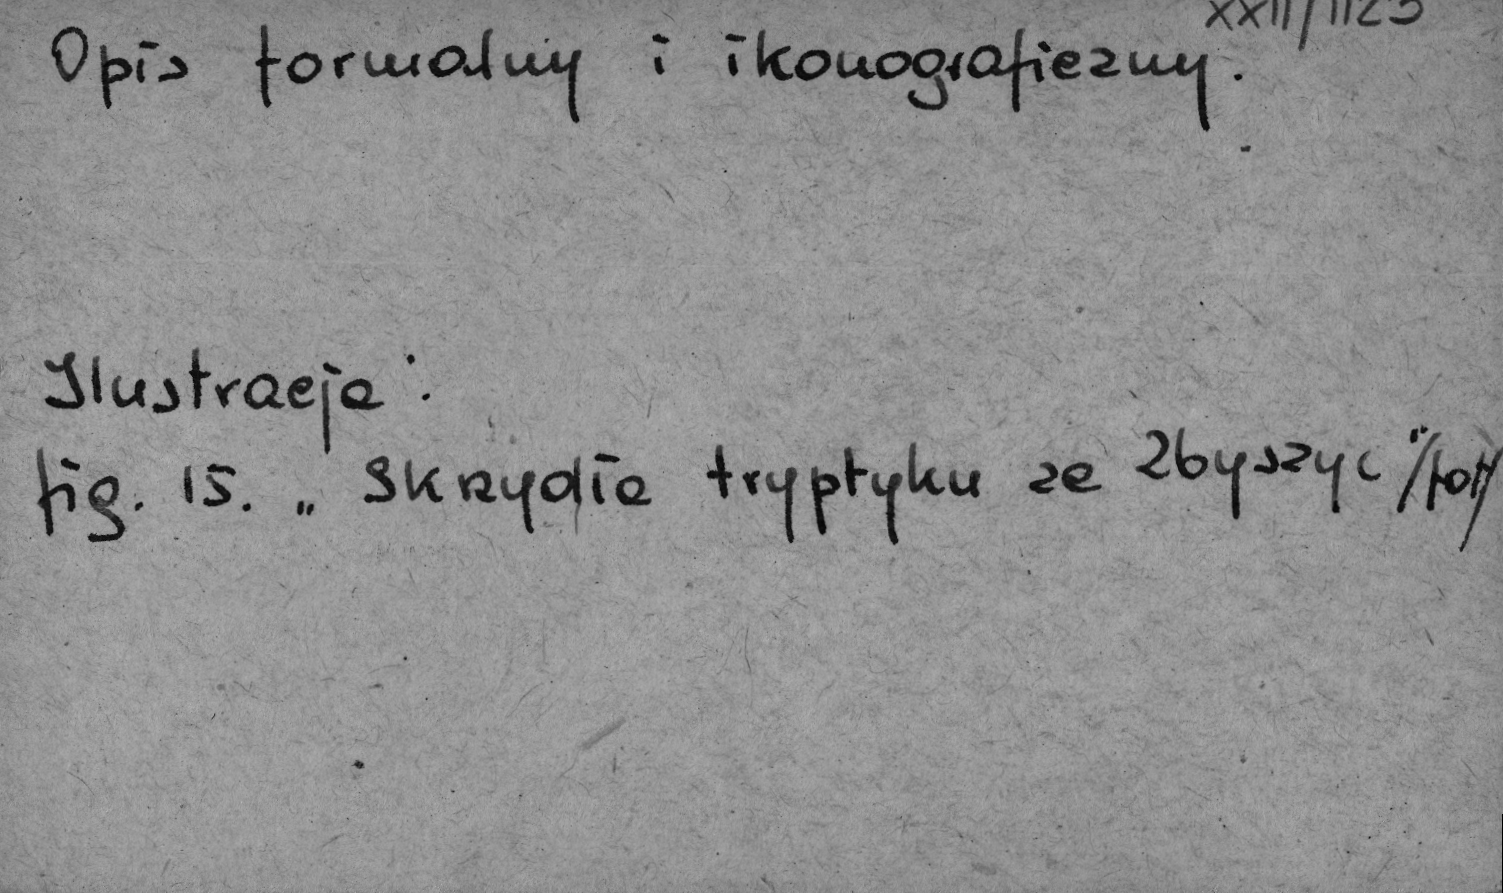 XXII/1123
Opis formalny i ikonograficzny.
Ilustracje:
fig. 15. „Skrzydła tryptyku ze Zbyszyc" /fot/